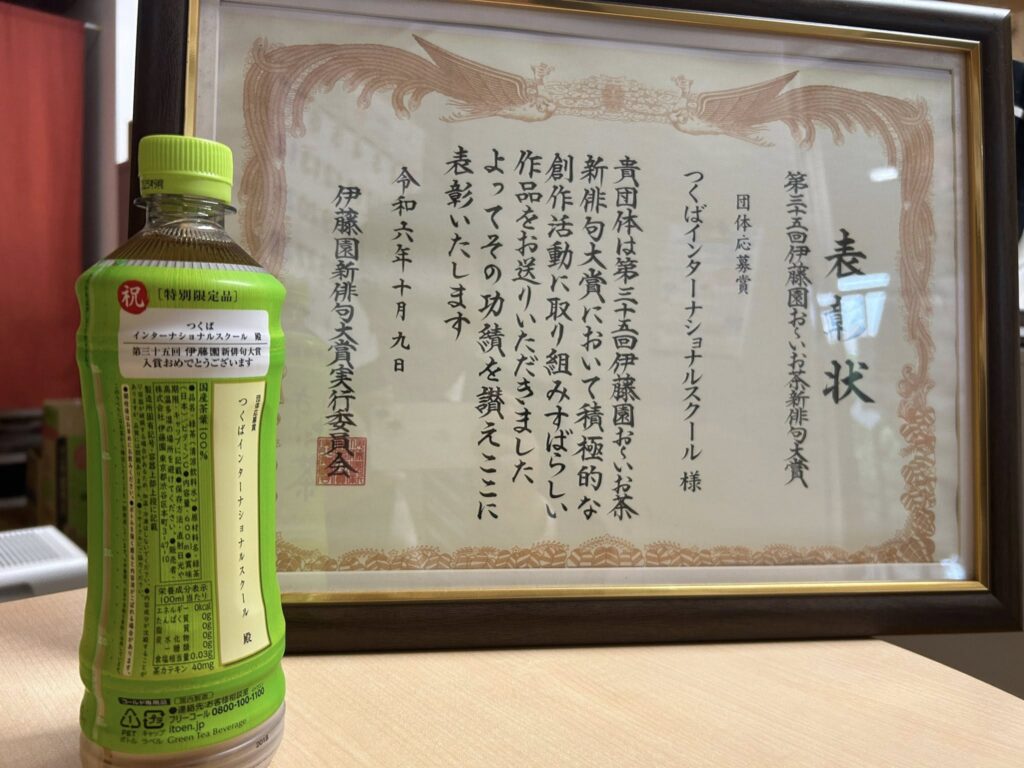 表彰状
第三十五回伊藤園お〜いお茶新俳句大賞
団体応募賞
つくばインターナショナルスクール 様
貴団体は第三十五回伊藤園お〜いお茶
新俳句大賞において積極的な
創作活動に取り組みすばらしい
作品をお送りいただきました
よってその功績を讃えここに
表彰いたします
令和六年十月九日
伊藤園新俳句大賞実行委員会
祝
[特別限定品]
つくば
インターナショナルスクール 殿
第三十五回 伊藤園新俳句大賞
入賞おめでとうございます
団体応募賞
つくばインターナショナルスクール 殿
国産茶葉100%
栄養成分表示
100ml当たり
エネルギー 0kcal
たんぱく質 0g
脂質 0g
炭水化物 0g
糖類 0g
食塩相当量 0.03g
茶カテキン 40mg
コールド専用品
[国内製造]
●連絡先:お客様相談室
フリーコール 0800-100-1100
itoen.jp
Green Tea Beverage
PET
ボトル
キャップ
ラベル